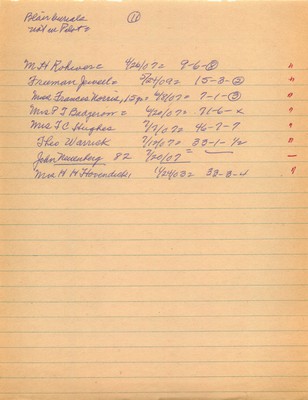 Blair burials (11)
not in Plots
M H Rohwer = 4/26/07 = 9-6-②
Freeman Jewel = 7/24/09 = 15-3-②
Miss Frances Norris, 15 yr = 4/8/07 = 7-1-③
Mrs P T = 4/20/07 = 71-6-x
Mrs T C Hughes 7/17/07 = 46-7-7
Theo Warrick 7/17/07 = 33-1-1/2
John 82 7/20/07 =
Mrs H H 1/24/03 = 33-3-4